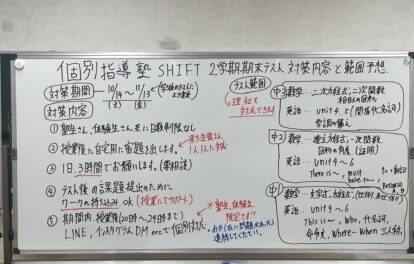 個別指導塾 SHIFT 2学期期末テスト 対策内容と範囲予想
対策期間 … 10/14〜11/13
(火) (金)
対策内容
① 塾生さん、体験生さん共に日数制限なし
② 授業後に自宅用に宿題を出します。
1人1人に対応
③ 1日、3時間でお願いします。(要相談)
④ テスト後の課題提出のために
ワークの持ち込み、OK (授業にてサポート)
⑤ 期間内、授業後(20時〜21時まで)
LINE、インスタグラムDM などで個別対応
塾生、体験生
限定です!!
わからない問題があったら
連絡してください。
テスト範囲
理社も
対応できます
中3 数学… 二次方程式、二次関数
相似の図形
英語… unit 4〜5 (関係代名詞)
学調の備え
中2 数学… 連立方程式、一次関数
図形の角度 (証明)
英語… unit 4〜6
There is〜, must
have to〜
中1 数学… 文字式、方程式、比例・反比例
英語… unit 4〜6
This is〜, Who, 代名詞,
命令文, Where〜 When 三人称,